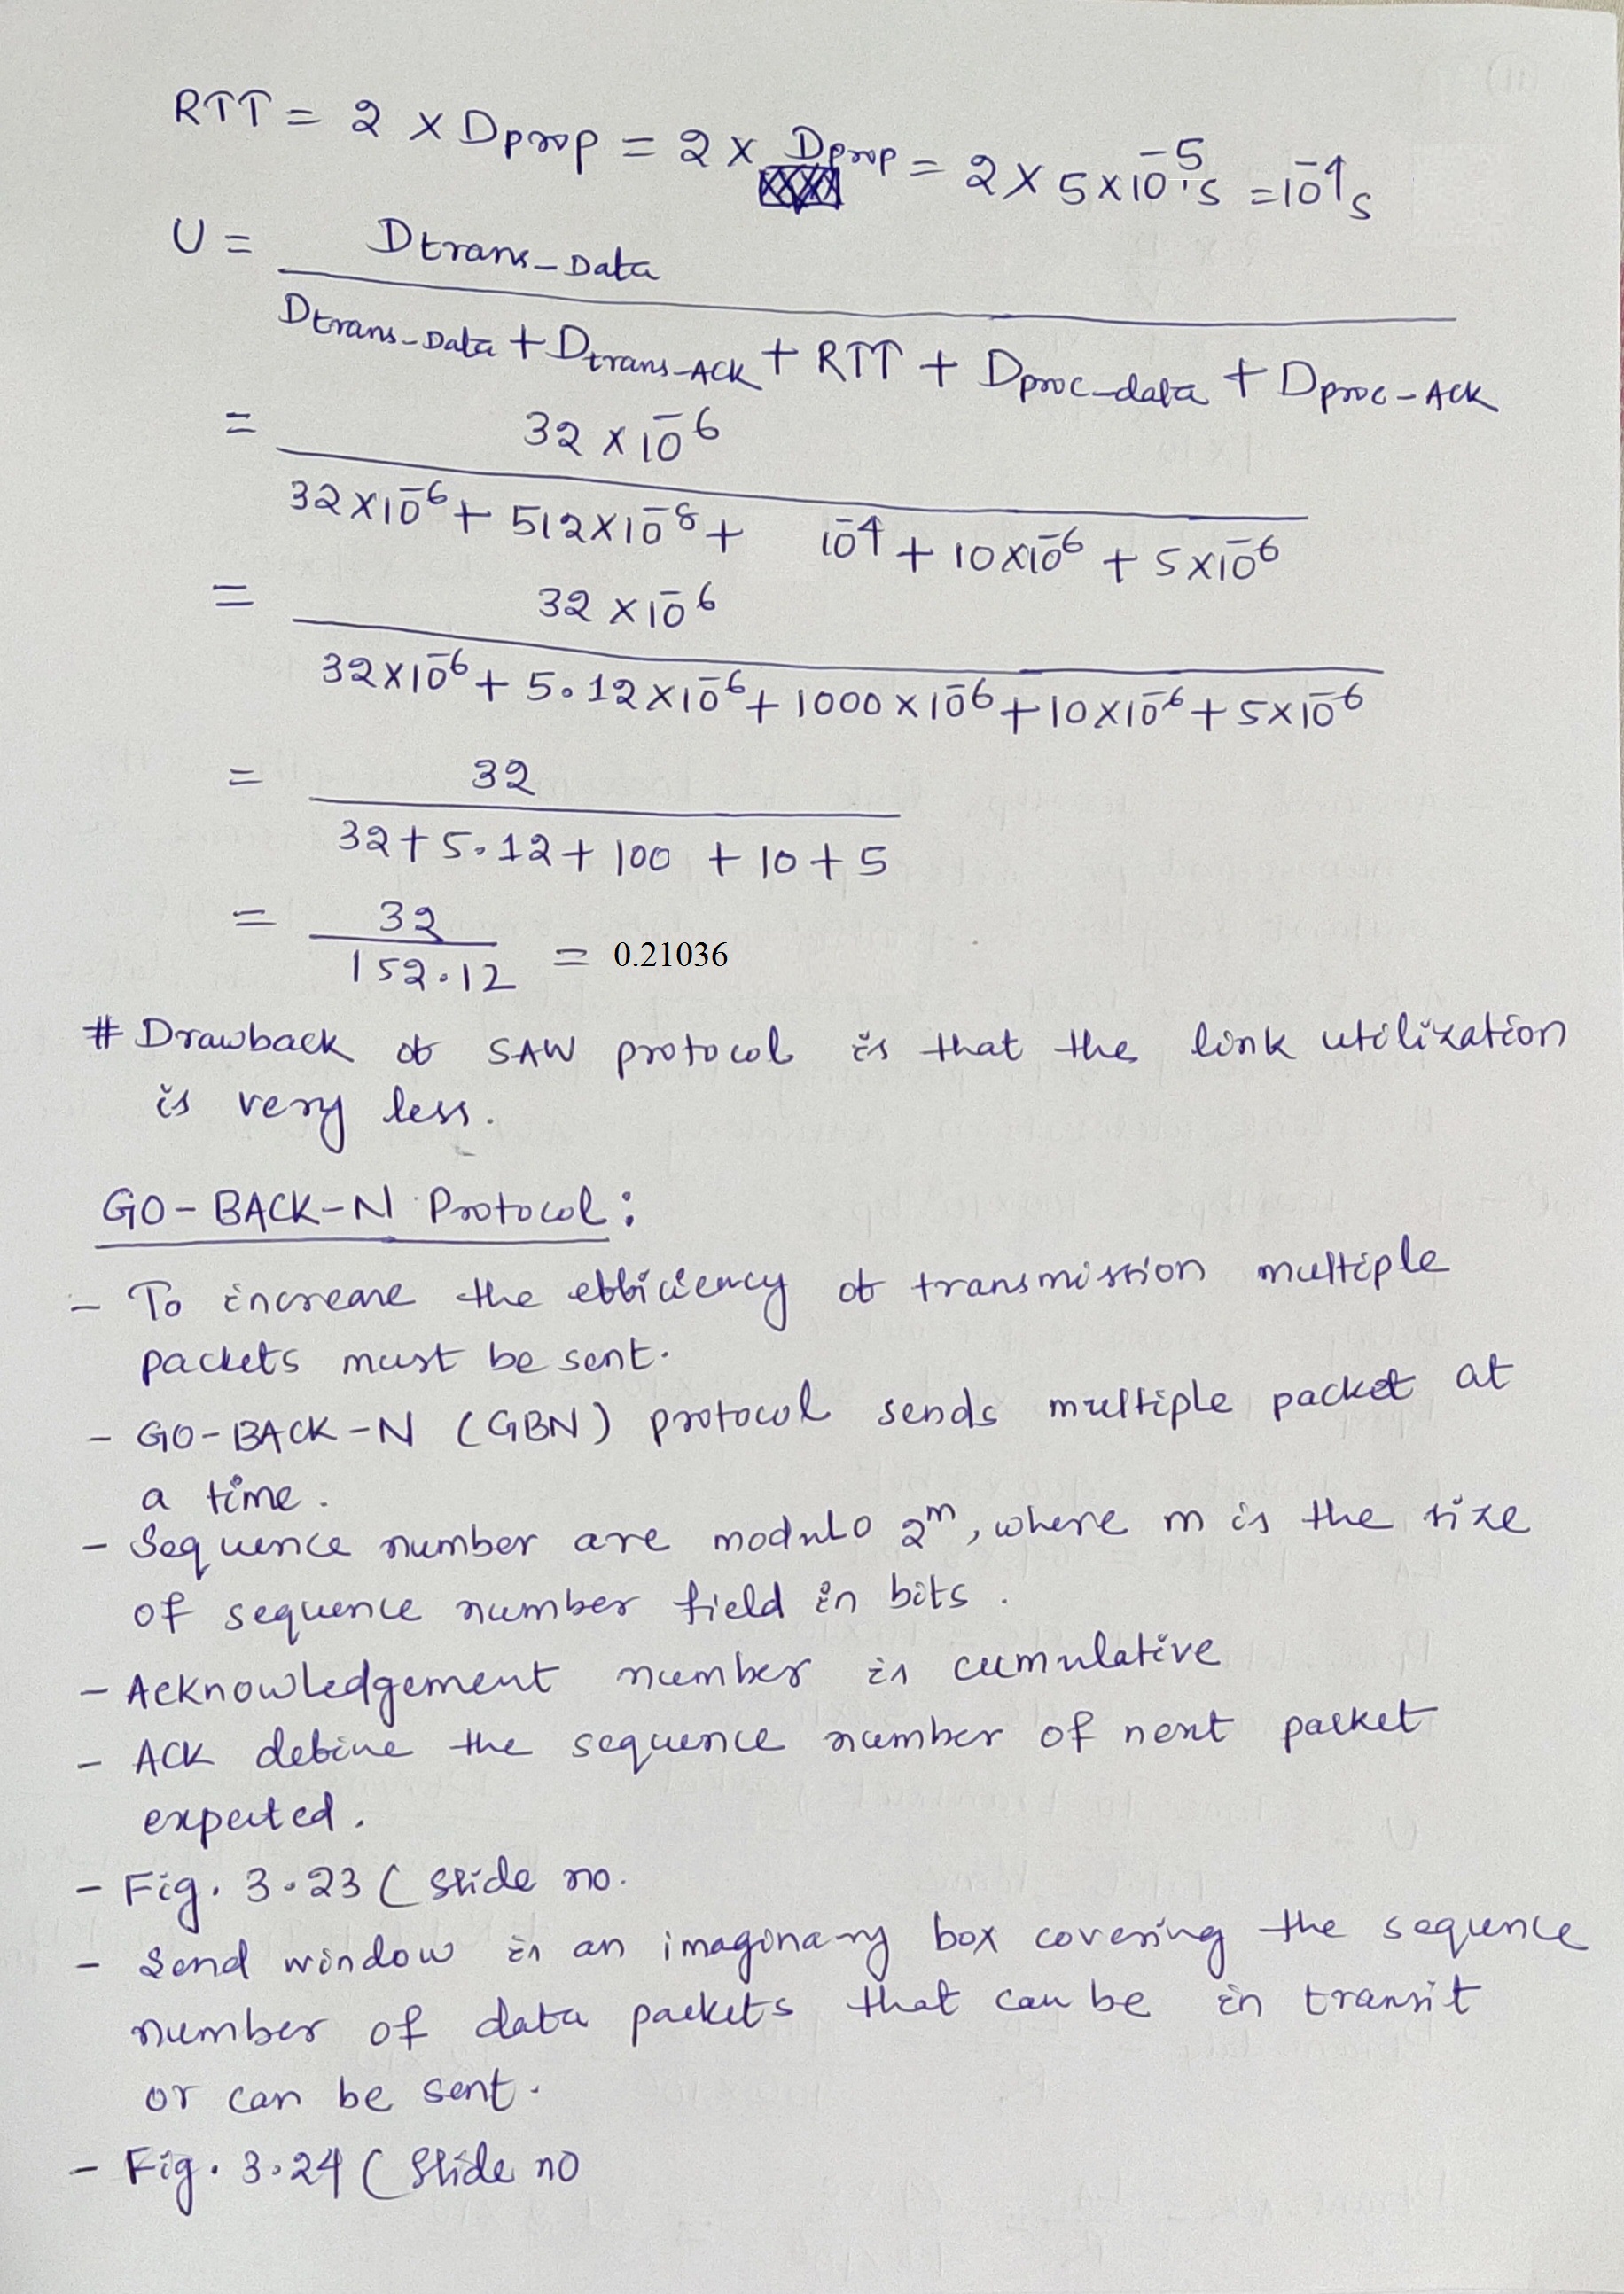 RTT = 2 × Dprop = 2 × Dprop = 2 × 5 × 10⁻⁵ s = 10⁻⁴ s
U = Dtrans_Data
Dtrans-Data + Dtrans-ACK + RTT + Dproc-data + Dproc-ACK
= 32 × 10⁻⁶
32×10⁻⁶ + 512×10⁻⁸ + 10⁻⁴ + 10×10⁻⁶ + 5×10⁻⁶
= 32 × 10⁻⁶
32×10⁻⁶ + 5.12×10⁻⁶ + 1000×10⁻⁶ + 10×10⁻⁶ + 5×10⁻⁶
= 32
32 + 5.12 + 100 + 10 + 5
= 32
152.12 = 0.21036
# Drawback of SAW protocol is that the link utilization
is very less.
GO-BACK-N Protocol:
- To increase the efficiency of transmission multiple
packets must be sent.
- GO-BACK-N (GBN) protocol sends multiple packet at
a time.
- Sequence number are modulo 2ᵐ, where m is the size
of sequence number field in bits.
- Acknowledgement number is cumulative
- ACK define the sequence number of next packet
expected.
- Fig. 3.23 ( Slide no.
- Send window is an imaginary box covering the sequence
number of data packets that can be in transit
or can be sent.
- Fig. 3.24 ( Slide no